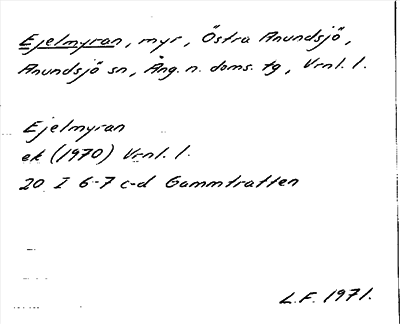 Ejelmyran, myr, Östra Anundsjö,
Anundsjö sn, Ång. n. doms. tg, Vrnl. l.
Ejelmyran
ek (1970) Vrnl. l.
20 I 6-7 c-d Gammtratten
L.F. 1971.